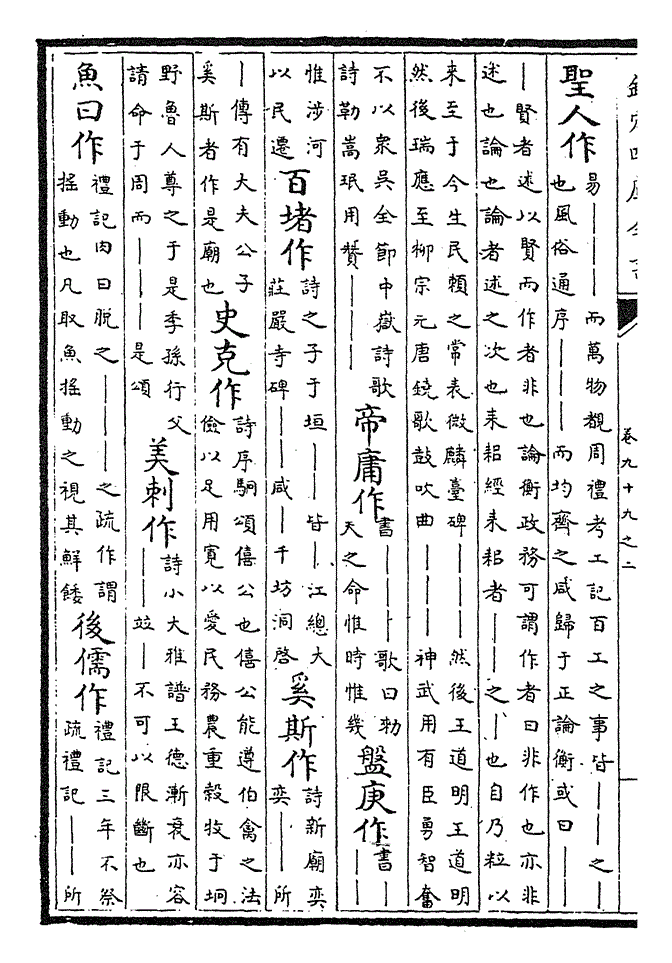 欽定四庫全書
卷九十九之二
聖人作
易｜｜｜而萬物覩周禮考工記百工之事皆｜｜｜之
也風俗通序｜｜｜｜而均齊之咸歸于正論衡或曰｜｜
｜賢者述以賢而作者非也論衡政務可謂作者曰非作也亦非
述也論也論者述之次也耒耜經耒耜者｜｜之｜也自乃粒以
來至于今生民賴之常表微麟臺碑｜｜｜｜然後王道明王道明
然後瑞應至柳宗元唐鐃歌鼓吹曲｜｜｜｜神武用有臣勇智奮
不以衆吳全節中嶽詩歌
詩勒嵩珉用贊｜｜｜
帝庸作
書｜｜｜｜歌曰勑
天之命惟時惟幾
盤庚作
書｜｜
｜｜
惟涉河
以民遷
百堵作
詩之子于垣｜｜皆｜江總大
莊嚴寺碑｜｜咸｜千坊洞啓
奚斯作
詩新廟奕
奕｜｜所
｜傳有大夫公子
奚斯者作是廟也
史克作
詩序駉頌僖公也僖公能遵伯禽之法
儉以足用寬以愛民務農重穀牧于坰
野魯人尊之于是季孫行父
請命于周而｜｜｜｜是頌
美刺作
詩小大雅譜王德漸衰亦容
｜｜竝｜不可以限斷也
魚曰作
禮記肉曰脫之｜｜｜之疏作謂
搖動也凡取魚搖動之視其鮮餒
後儒作
禮記三年不祭
疏禮記｜｜｜所